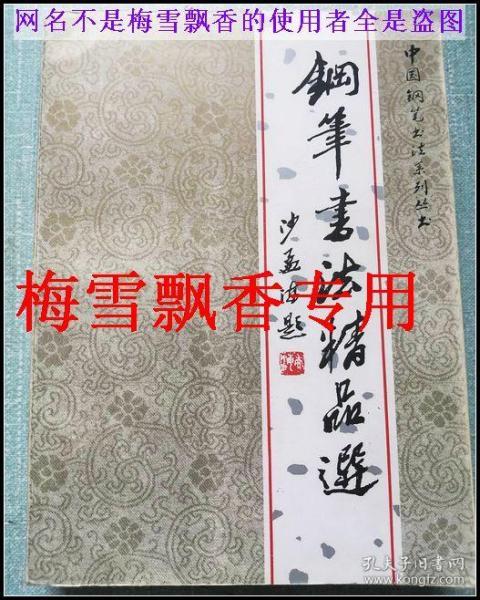 网名不是梅雪飘香的使用者全是盗图
中国钢笔书法系列丛书
鋼筆書法精品選
沙孟海题
梅雪飘香专用
孔夫子旧书网
www.kongfz.com